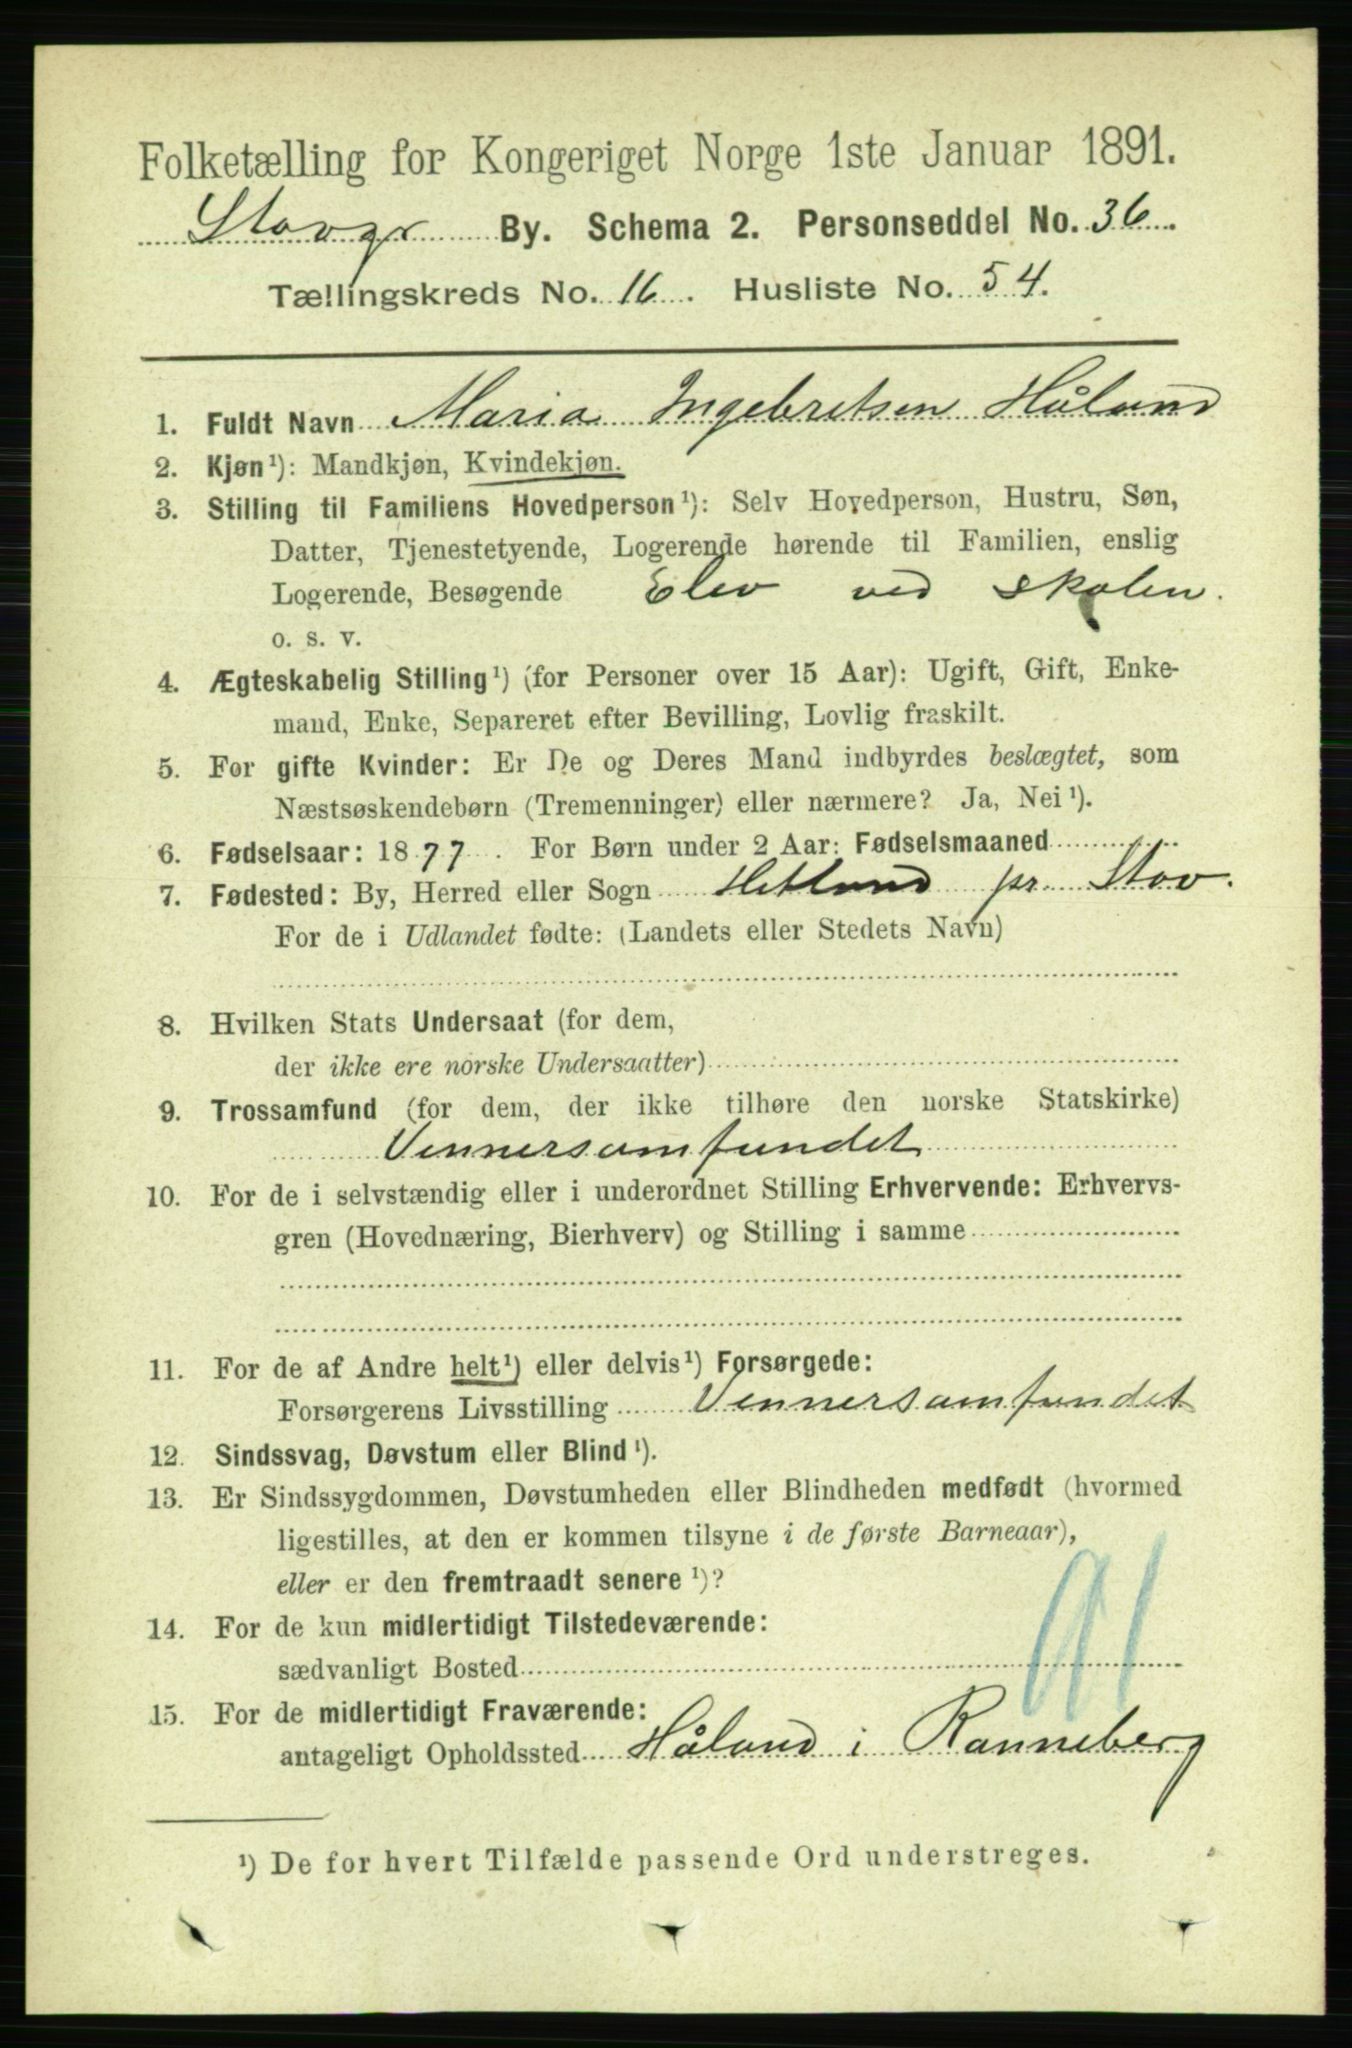 Folketælling for Kongeriget Norge 1ste Januar 1891.
Stavgr By. Schema 2. Personseddel No. 36.
Tællingskreds No. 16. Husliste No. 54.
1. Fuldt Navn Maria Ingebretsen Håland
2. Kjøn¹): Mandkjøn, Kvindekjøn.
3. Stilling til Familiens Hovedperson¹): Selv Hovedperson, Hustru, Søn,
Datter, Tjenestetyende, Logerende hørende til Familien, enslig
Logerende, Besøgende Elev ved skolen.
o. s. v.
4. Ægteskabelig Stilling¹) (for Personer over 15 Aar): Ugift, Gift, Enke-
mand, Enke, Separeret efter Bevilling, Lovlig fraskilt.
5. For gifte Kvinder: Er De og Deres Mand indbyrdes beslægtet, som
Næstsøskendebørn (Tremenninger) eller nærmere? Ja, Nei¹).
6. Fødselsaar: 1877. For Børn under 2 Aar: Fødselsmaaned
7. Fødested: By, Herred eller Sogn Hetland pr Stav.
For de i Udlandet fødte: (Landets eller Stedets Navn)
8. Hvilken Stats Undersaat (for dem,
der ikke ere norske Undersaatter)
9. Trossamfund (for dem, der ikke tilhøre den norske Statskirke)
Vennersamfundet
10. For de i selvstændig eller i underordnet Stilling Erhvervende: Erhvervs-
gren (Hovednæring, Bierhverv) og Stilling i samme
11. For de af Andre helt¹) eller delvis¹) Forsørgede:
Forsørgerens Livsstilling Vennersamfundet
12. Sindssvag, Døvstum eller Blind¹).
13. Er Sindssygdommen, Døvstumheden eller Blindheden medfødt (hvormed
ligestilles, at den er kommen tilsyne i de første Barneaar),
eller er den fremtraadt senere¹)?
14. For de kun midlertidigt Tilstedeværende:
sædvanligt Bosted
91
15. For de midlertidigt Fraværende:
antageligt Opholdssted Håland i Ranneberg
¹) De for hvert Tilfælde passende Ord understreges.